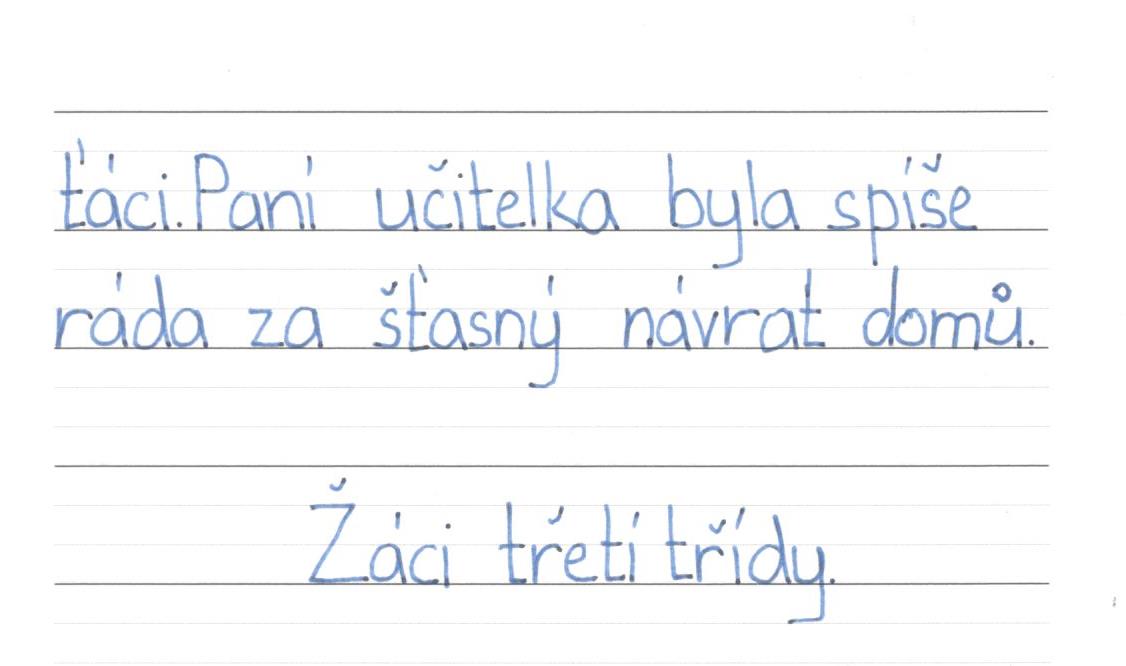 ťáci. Paní učitelka byla spíše
ráda za šťasný návrat domů.
Žáci třetí třídy.